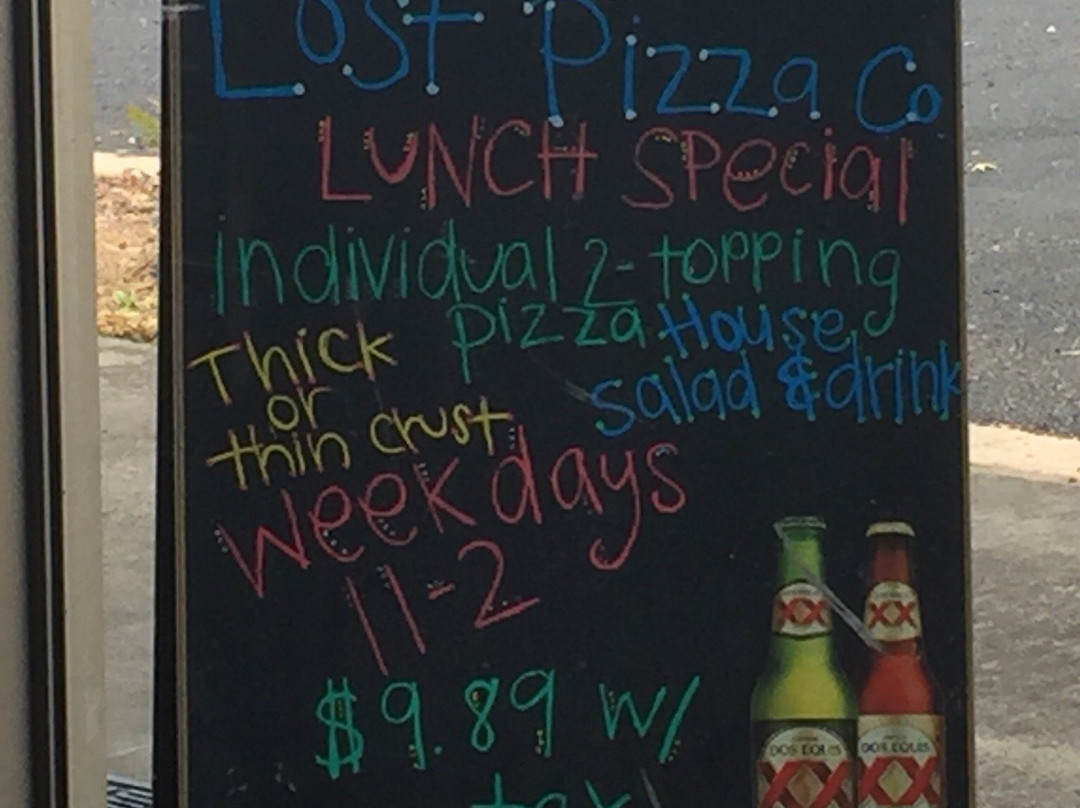 Lost Pizza Co
LUNCH Special
Individual 2-topping
pizza House
salad & drink
Thick
or
thin crust
Weekdays
11-2
$9.89 w/
tax
XX XX
DOS EQUIS DOS EQUIS
XX XX